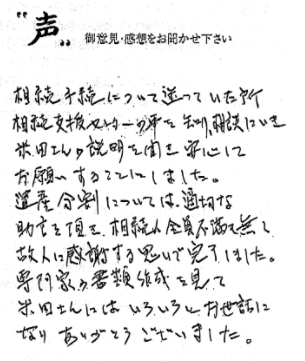 "声" 御意見・感想をお聞かせ下さい
相続手続について迷っていた所
相続支援センターの事を知り、相談にいき
米田さんの説明を聞き安心して
お願いすることにしました。
遺産分割については、適切な
助言を頂き、相続人全員不満も無く
故人に感謝する思いで完了しました。
専門家の書類作成を見て
米田さんにはいろいろとお世話に
なりありがとうございました。